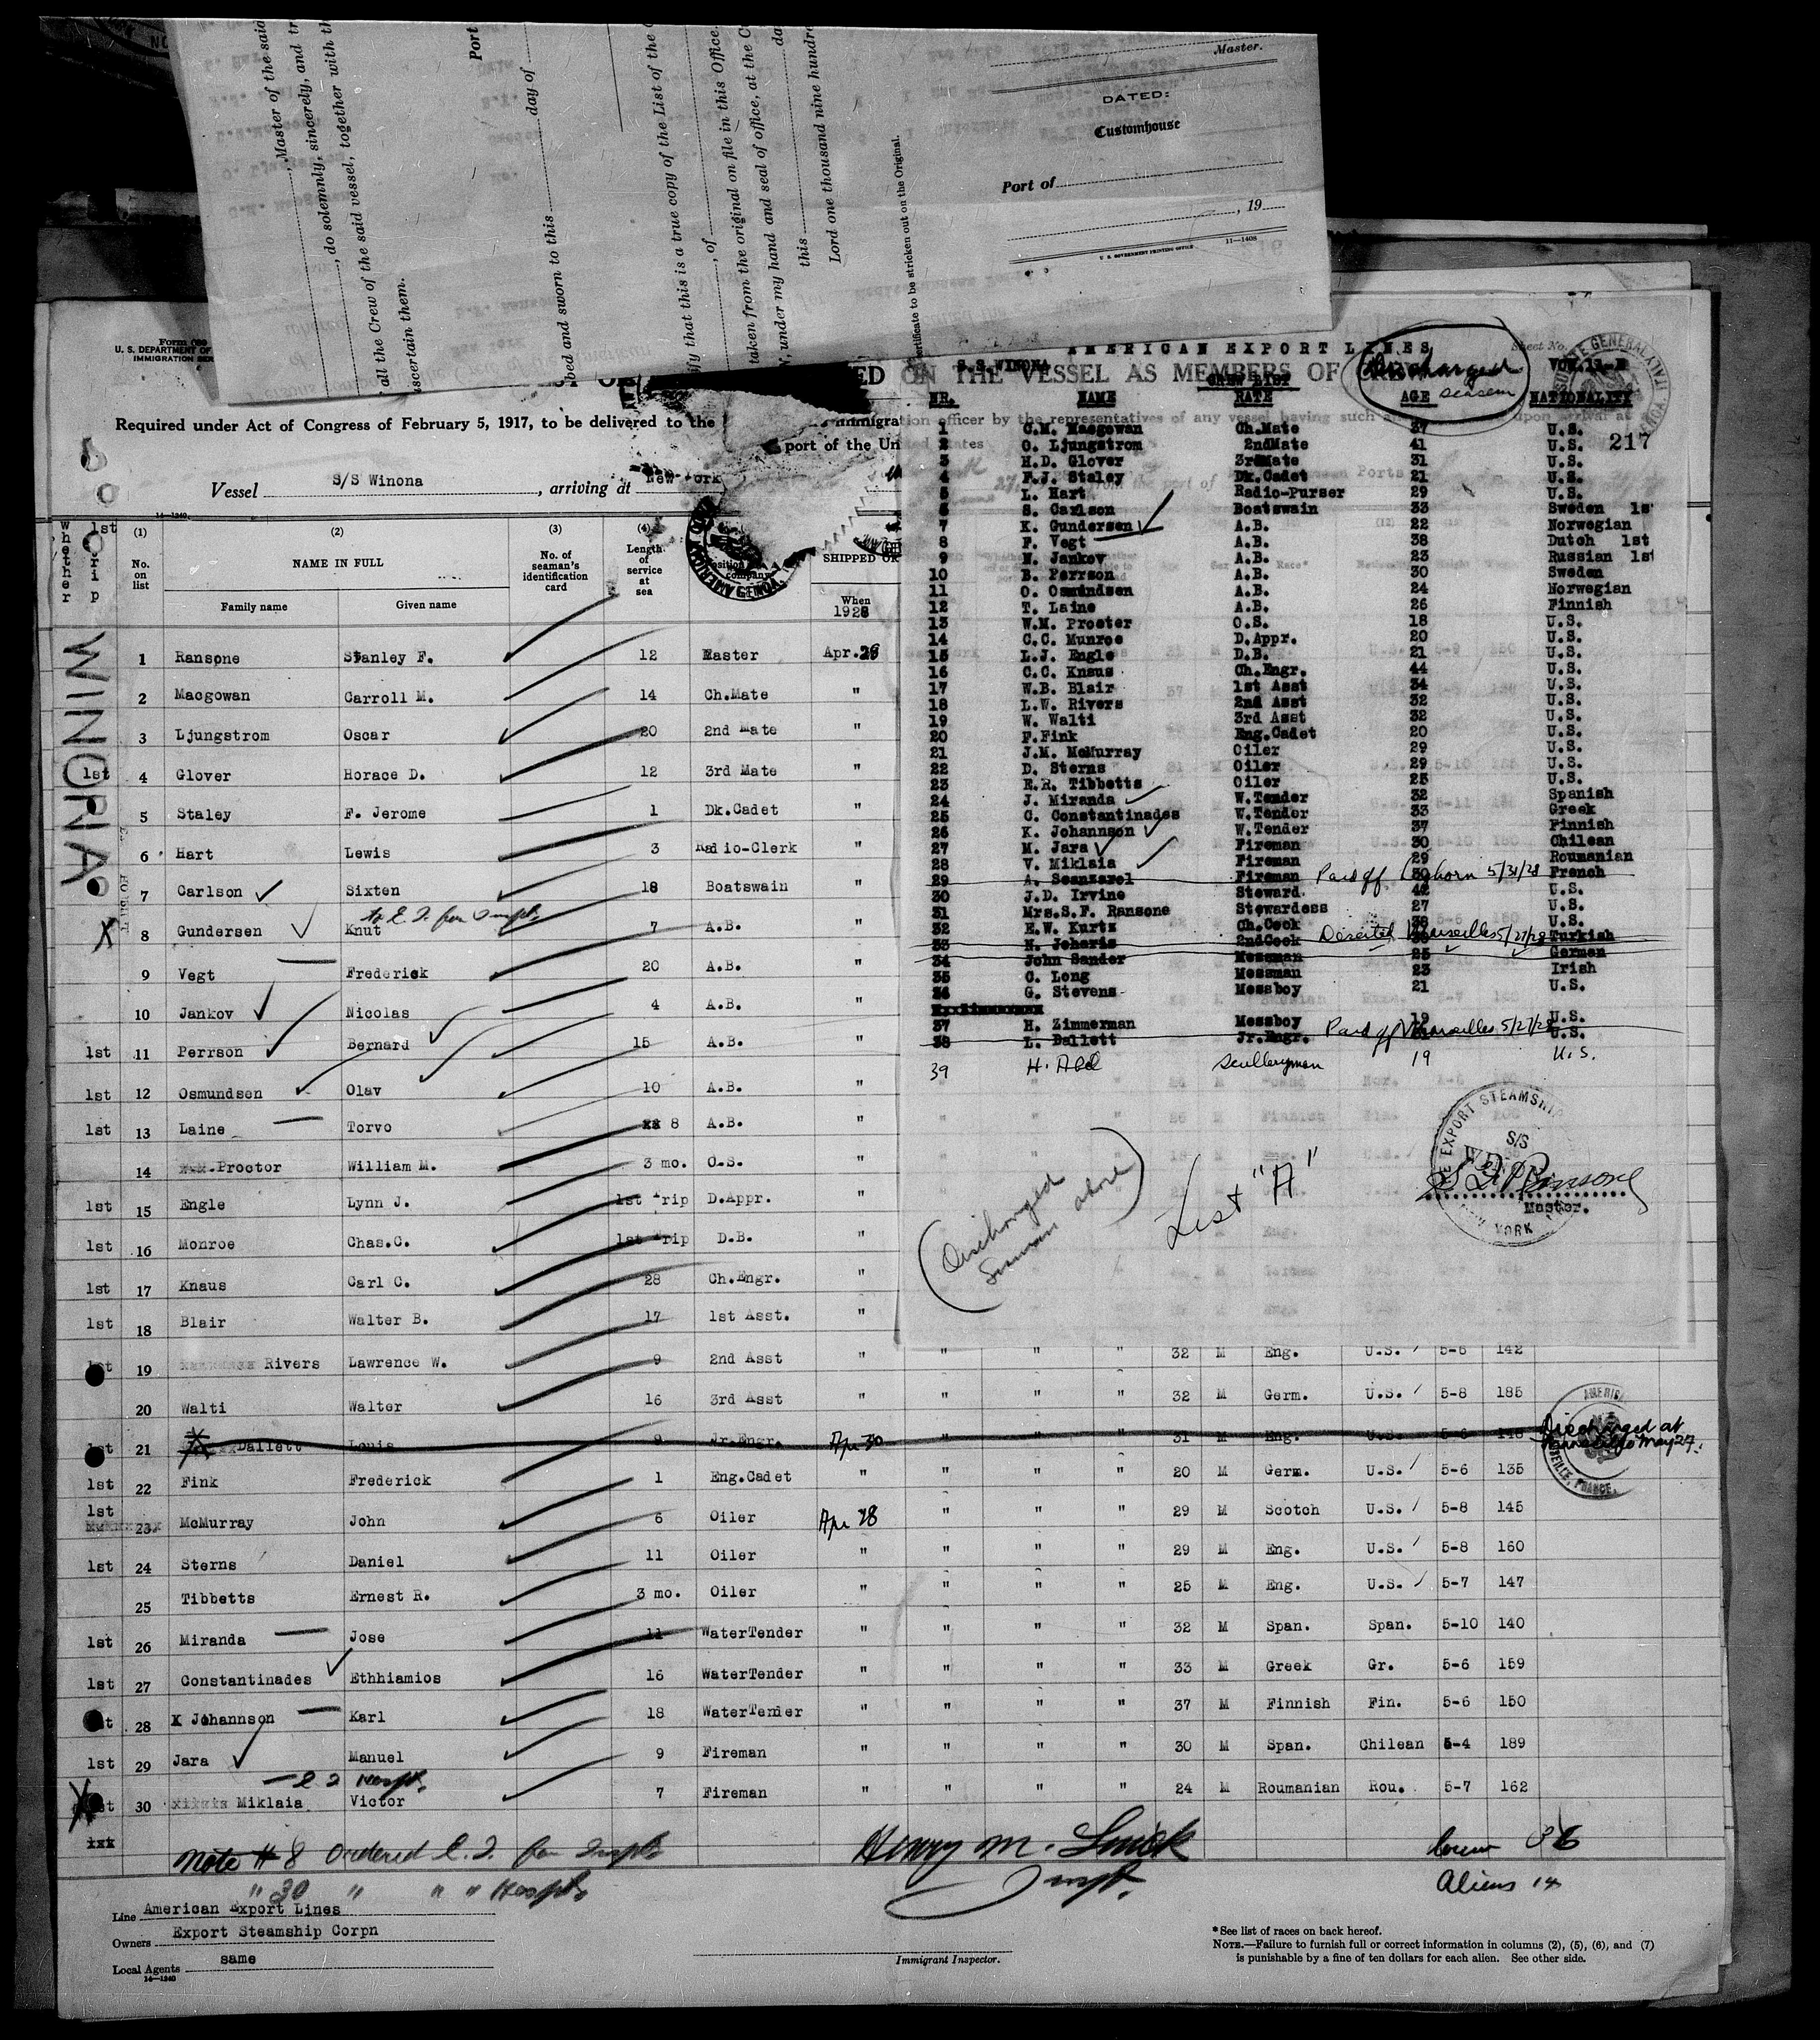 Master of the said
, do solemnly, sincerely, and
all the Crew of the said vessel, together with
ascertain them.
Port
bed and sworn to this
day of
ify that this is a true copy of the List of the
, of
taken from the original on file in this Office.
, under my hand and seal of office, at the
this
da
Lord one thousand nine hundre
ertificate to be stricken out on the Original.
Master.
DATED:
Customhouse
Port of
, 19
U. S. GOVERNMENT PRINTING OFFICE
11—1408
U. S. DEPARTMENT OF
ED ON THE VESSEL AS MEMBERS OF
Required under Act of Congress of February 5, 1917, to be delivered to the
port of the Un
Vessel S/S Winona, arriving at New York
14—1240
Whether 1st Trip
WINONA
(1) (2) (3) (4)
No. on list
NAME IN FULL
Family name Given name
No. of seaman's identification card
Length of service at sea
SHIPPED OR
When
1928
1 Ransone Stanley F. 12 Master Apr.28
2 Macgowan Carroll M. 14 Ch.Mate "
3 Ljungstrom Oscar 20 2nd Mate "
1st 4 Glover Horace D. 12 3rd Mate "
5 Staley F. Jerome 1 Dk.Cadet "
6 Hart Lewis 3 Radio-Clerk "
7 Carlson Sixten 18 Boatswain "
to E. I. for
X 8 Gundersen Knut 7 A.B. "
9 Vegt Frederick 20 A.B. "
10 Jankov Nicolas 4 A.B. "
1st 11 Perrson Bernard 15 A.B. "
1st 12 Osmundsen Olav 10 A.B. "
1st 13 Laine Torvo 8 A.B. "
14 Proctor William M. 3 mo. O.S. "
1st 15 Engle Lynn J. 1st Trip D.Appr. "
1st 16 Monroe Chas.C. 1st Trip D.B. "
1st 17 Knaus Carl C. 28 Ch.Engr. "
1st 18 Blair Walter B. 17 1st Asst. "
1st 19 Rivers Lawrence W. 9 2nd Asst " " " " 32 M Eng. U.S. 5-6 142
20 Walti Walter 16 3rd Asst " " " " 32 M Germ. U.S. 5-8 185
1st 21 Dallett Louis 9 Jr.Engr. Apr 30 " " " 31 M Eng. U.S. 5-6 148 Discharged at Marseille May 27.
1st 22 Fink Frederick 1 Eng.Cadet " " " " 20 M Germ. U.S. 5-6 135
1st 23 McMurray John 6 Oiler Apr 28 " " " 29 M Scotch U.S. 5-8 145
1st 24 Sterns Daniel 11 Oiler " " " " 29 M Eng. U.S. 5-8 160
25 Tibbetts Ernest R. 3 mo. Oiler " " " " 25 M Eng. U.S. 5-7 147
1st 26 Miranda Jose 11 WaterTender " " " " 32 M Span. Span. 5-10 140
1st 27 Constantinades Ethhiamios 16 WaterTender " " " " 33 M Greek Gr. 5-6 159
1st 28 Johannson Karl 18 WaterTender " " " " 37 M Finnish Fin. 5-6 150
1st 29 Jara Manuel 9 Fireman " " " " 30 M Span. Chilean 5-4 189
E I Hospt.
X 1st 30 Miklaia Victor 7 Fireman " " " " 24 M Roumanian Rou. 5-7 162
xxx
Note # 8 Ordered E. I. for
" 30 " " " Hospt.
Henry M.
Inspt.
Crew 36
Aliens 14
Line American Export Lines
Owners Export Steamship Corpn
Local Agents same
14—1240
Immigrant Inspector.
*See list of races on back hereof.
NOTE.—Failure to furnish full or correct information in columns (2), (5), (6), and (7)
is punishable by a fine of ten dollars for each alien. See other side.
AMERICAN EXPORT LINES
S.S. WINONA
CREW LIST
VOY.11-E
Discharged seamen
217
NR. NAME RATE AGE NATIONALITY
1 C.M. Macgowan Ch.Mate 37 U.S.
2 O. Ljungstrom 2ndMate 41 U.S.
3 H.D. Glover 3rdMate 31 U.S.
4 F.J. Staley Dk.Cadet 21 U.S.
5 L. Hart Radio-Purser 29 U.S.
6 S. Carlson Boatswain 33 Sweden 1s
7 K. Gundersen A.B. 22 Norwegian
8 F. Vegt A.B. 38 Dutch 1st
9 N. Jankov A.B. 23 Russian 1st
10 B. Perrson A.B. 30 Sweden
11 O. Osmindsen A.B. 24 Norwegian
12 T. Laine A.B. 26 Finnish
13 W.M. Procter O.S. 18 U.S.
14 C.C. Munroe D.Appr. 20 U.S.
15 L.J. Engle D.B. 21 U.S.
16 C.C. Knaus Ch.Engr. 44 U.S.
17 W.B. Blair 1st Asst 34 U.S.
18 L.W. Rivers 2nd Asst 32 U.S.
19 W. Walti 3rd Asst 32 U.S.
20 F.Fink Eng.Cadet 20 U.S.
21 J.M. McMurray Oiler 29 U.S.
22 D. Sterns Oiler 29 U.S.
23 E.R. Tibbetts Oiler 25 U.S.
24 J. Miranda W.Tender 32 Spanish
25 C. Constantinades W.Tender 33 Greek
26 K. Johannson W.Tender 37 Finnish
27 M. Jara Fireman 30 Chilean
28 V. Miklaia Fireman 29 Roumanian
29 A. Scanzarol Fireman 30 French Paid off Leghorn 5/31/28
30 J.D. Irvine Steward 42 U.S.
31 Mrs.S.F. Ransone Stewardess 27 U.S.
32 E.W. Kurtz Ch.Cook 38 U.S.
33 N. Joharis 2ndCook Turkish Deserted Marseilles 5/27/28
34 John Sander Messman 25 German
35 C. Long Messman 23 Irish
36 G. Stevens Messboy 21 U.S.
37 H. Zimmerman Messboy 19 U.S.
38 L. Dallett Jr.Engr. U.S. Paid off Marseilles 5/27/28
39 H. Abel Sculleryman 19 U.S.
(Discharged Seaman above)
List "A"
EXPORT STEAMSHI
S/S
NEW YORK
S F Ransone
Master.